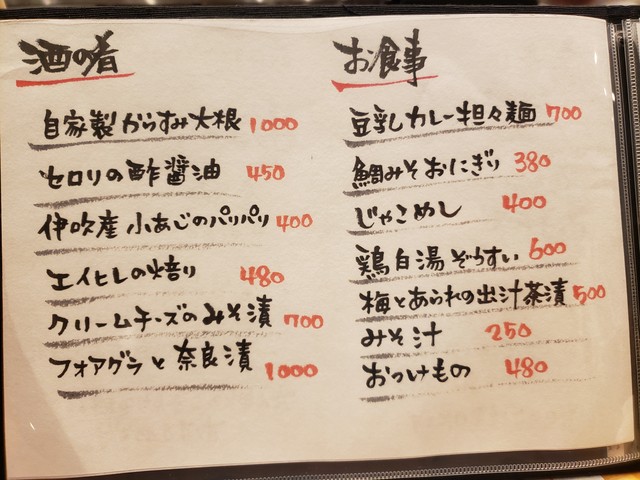 酒の肴
自家製からすみ大根 1000
セロリの酢醤油 450
伊吹産小あじのパリパリ 400
エイヒレの焙り 480
クリームチーズのみそ漬 700
フォアグラと奈良漬 1000
お食事
豆乳カレー担々麺 700
鯛みそおにぎり 380
じゃこめし 400
鶏白湯ぞうすい 600
梅とあられの出汁茶漬 500
みそ汁 250
おつけもの 480